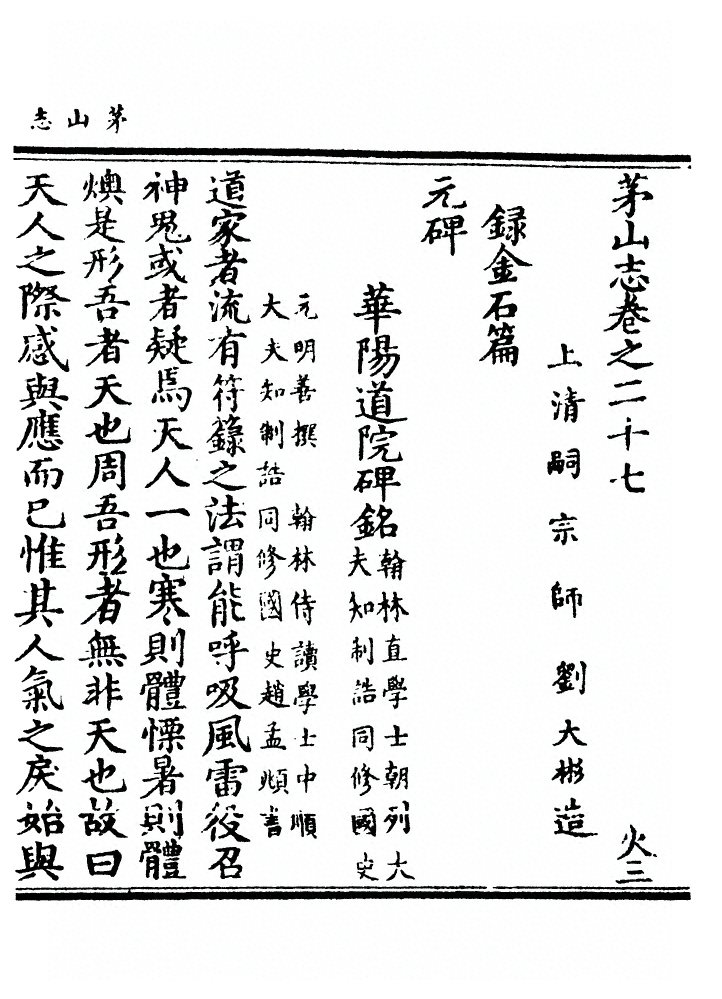 茅山志
茅山志卷之二十七
火三
上清嗣宗師劉大彬造
録金石篇
元碑
華陽道院碑銘
翰林直學士朝列大
夫知制誥同修國史
元明善撰 翰林侍讀學士中順
大夫知制誥同修國史趙孟頫書
道家者流有符籙之法謂能呼吸風雷役召
神鬼或者疑焉天人一也寒則體慄暑則體
燠是形吾者天也周吾形者無非天也故曰
天人之際感與應而已惟其人氣之戾始與